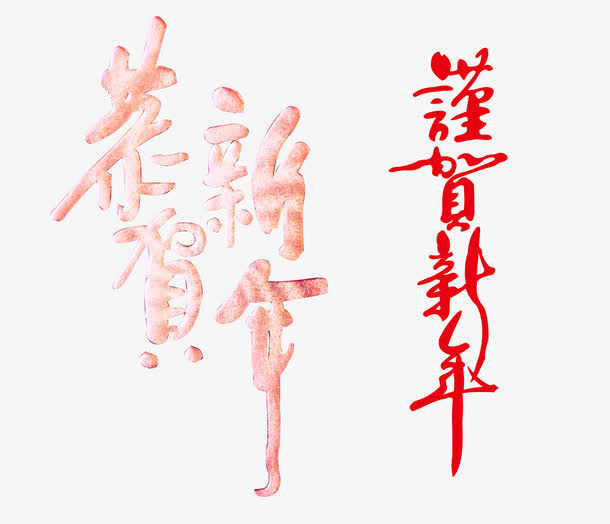 恭賀
新年
謹賀新年